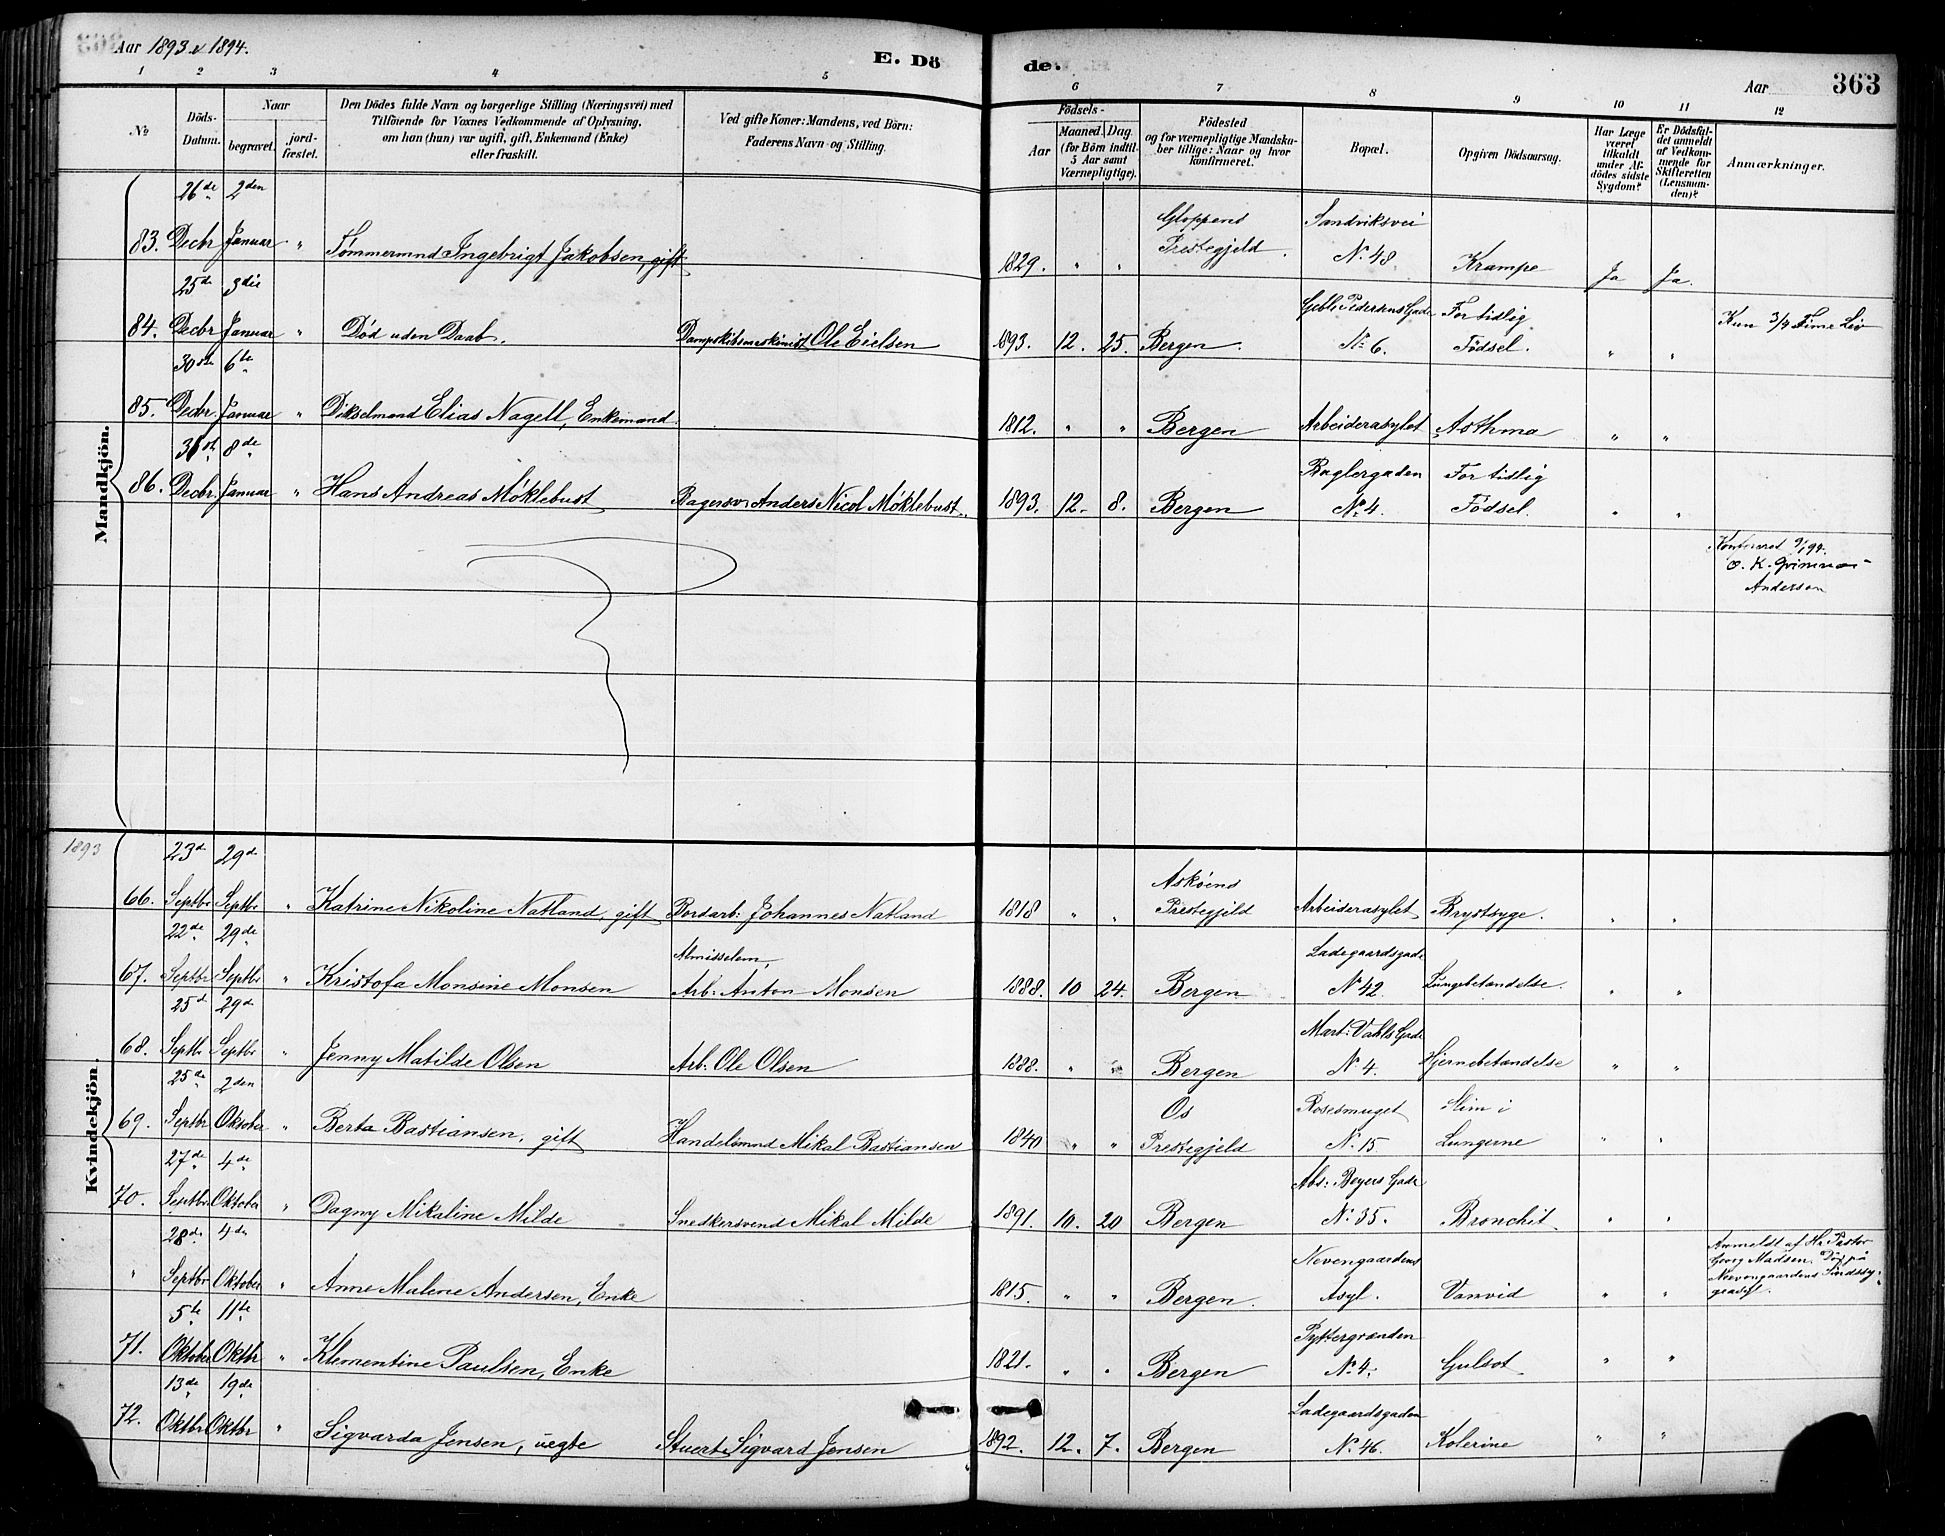 Aar 1893 & 1894.
E. Dö
de.
Aar
363
1 2 3 4 5 6 7 8 9 10 11 12
No
Döds-Datum.
Naar
begravet.
jord-fæstet.
Den Dödes fulde Navn og borgerlige Stilling (Næringsvei) med
Tilföiende for Voxnes Vedkommende af Oplysning,
om han (hun) var ugift, gift, Enkemand (Enke)
eller fraskilt.
Ved gifte Koner: Mandens, ved Börn:
Faderens Navn og Stilling.
Födsels-
Aar
Maaned. Dag.
(for Börn indtil
5 Aar samt
Værnepligtige).
Födested
og for værnepligtige Mandska-
ber tillige: Naar og hvor
konfirmeret.
Bopæl.
Opgiven Dödsaarsag.
Har Læge
været
tilkaldt
under Af-
dödes sidste
Sygdom?
Er Dödsfal-
det anmeldt
af Vedkom-
mende for
Skifteretten
(Lensman-
den)?
Anmærkninger.
Mandkjön.
83. 26de Decbr 2den Januar " Tømmermnd Ingebrigt Jakobsen, gift 1829. " " Gloppens Prestegjeld. Sandviksvei N. 48 Krampe Ja Ja.
84. 25de Decbr 3die Januar " Død uden Daab. Dampskibsmaskinist Ole Eielsen 1893. 12. 25. Bergen. Gade No 6. For tidlig Fødsel. " " Kun 3/4 Time Liv
85. 30te Decbr. 6te Januar " Elias Nagell, Enkemand. 1812. " " Bergen Arbeiderasylet Asthma " "
86. 31st Decbr. 8de Januar " Hans Andreas Møklebust Bagersv: Anders Nicol Møklebust. 1893. 12. 8. Bergen Baglergaden No 4. For tidlig Fødsel. " "
Konfereret 9/1 94.
O. K. Grimnæs-
Anderson
1893
Kvindekjön.
66. 23de Septbr 29de Septbr " Katrine Nikoline Natland, gift Bordarb: Johannes Natland 1818 " " Askøens Prestegjeld Arbeiderasylet Brystsyge. " "
67. 22de Septbr 29de Septbr " Kristofa Monsine Monsen Almisselem, Arb: Anton Monsen 1888. 10 24. Bergen Ladegaardsgade No 42 Lungebetændelse. " "
68. 25de Septbr 29de Septbr " Jenny Matilde Olsen Arb: Ole Olsen 1888. " " Bergen Mart: Vahls Gade N. 4. Hjernebetændelse " "
69. 25de Septbr 2den Oktober " Berta Bastiansen, gift Handelsmnd Mikal Bastiansen 1840 " " Os Prestegjeld Rosesmuget N. 15 Slim i Lungerne " "
70. 27de Septbr. 4de Oktober " Dagny Mikaline Milde Snedkersvend Mikal Milde 1891. 10. 20 Bergen Abs: Beyers Gade N. 35. Bronchit. " "
" 28de Septbr 4de Oktober " Anne Malene Andersen, Enke 1815. " " Bergen. Nevengaardens Asyl. Vanvid " " Anmeldt af Hr. Pastor Georg Madsen.
71. 5te Oktober 11te Oktbr " Klementine Paulsen, Enke 1821. " " Bergen Pyttergrænden No 4. Gulsot " "
72. 13de Oktbr 19de Oktbr " Sigvarda Jensen, uegte Stuert Sigvard Jensen 1892. 12. 7. Bergen Ladegaardsgaden N. 46. Kolerine " "